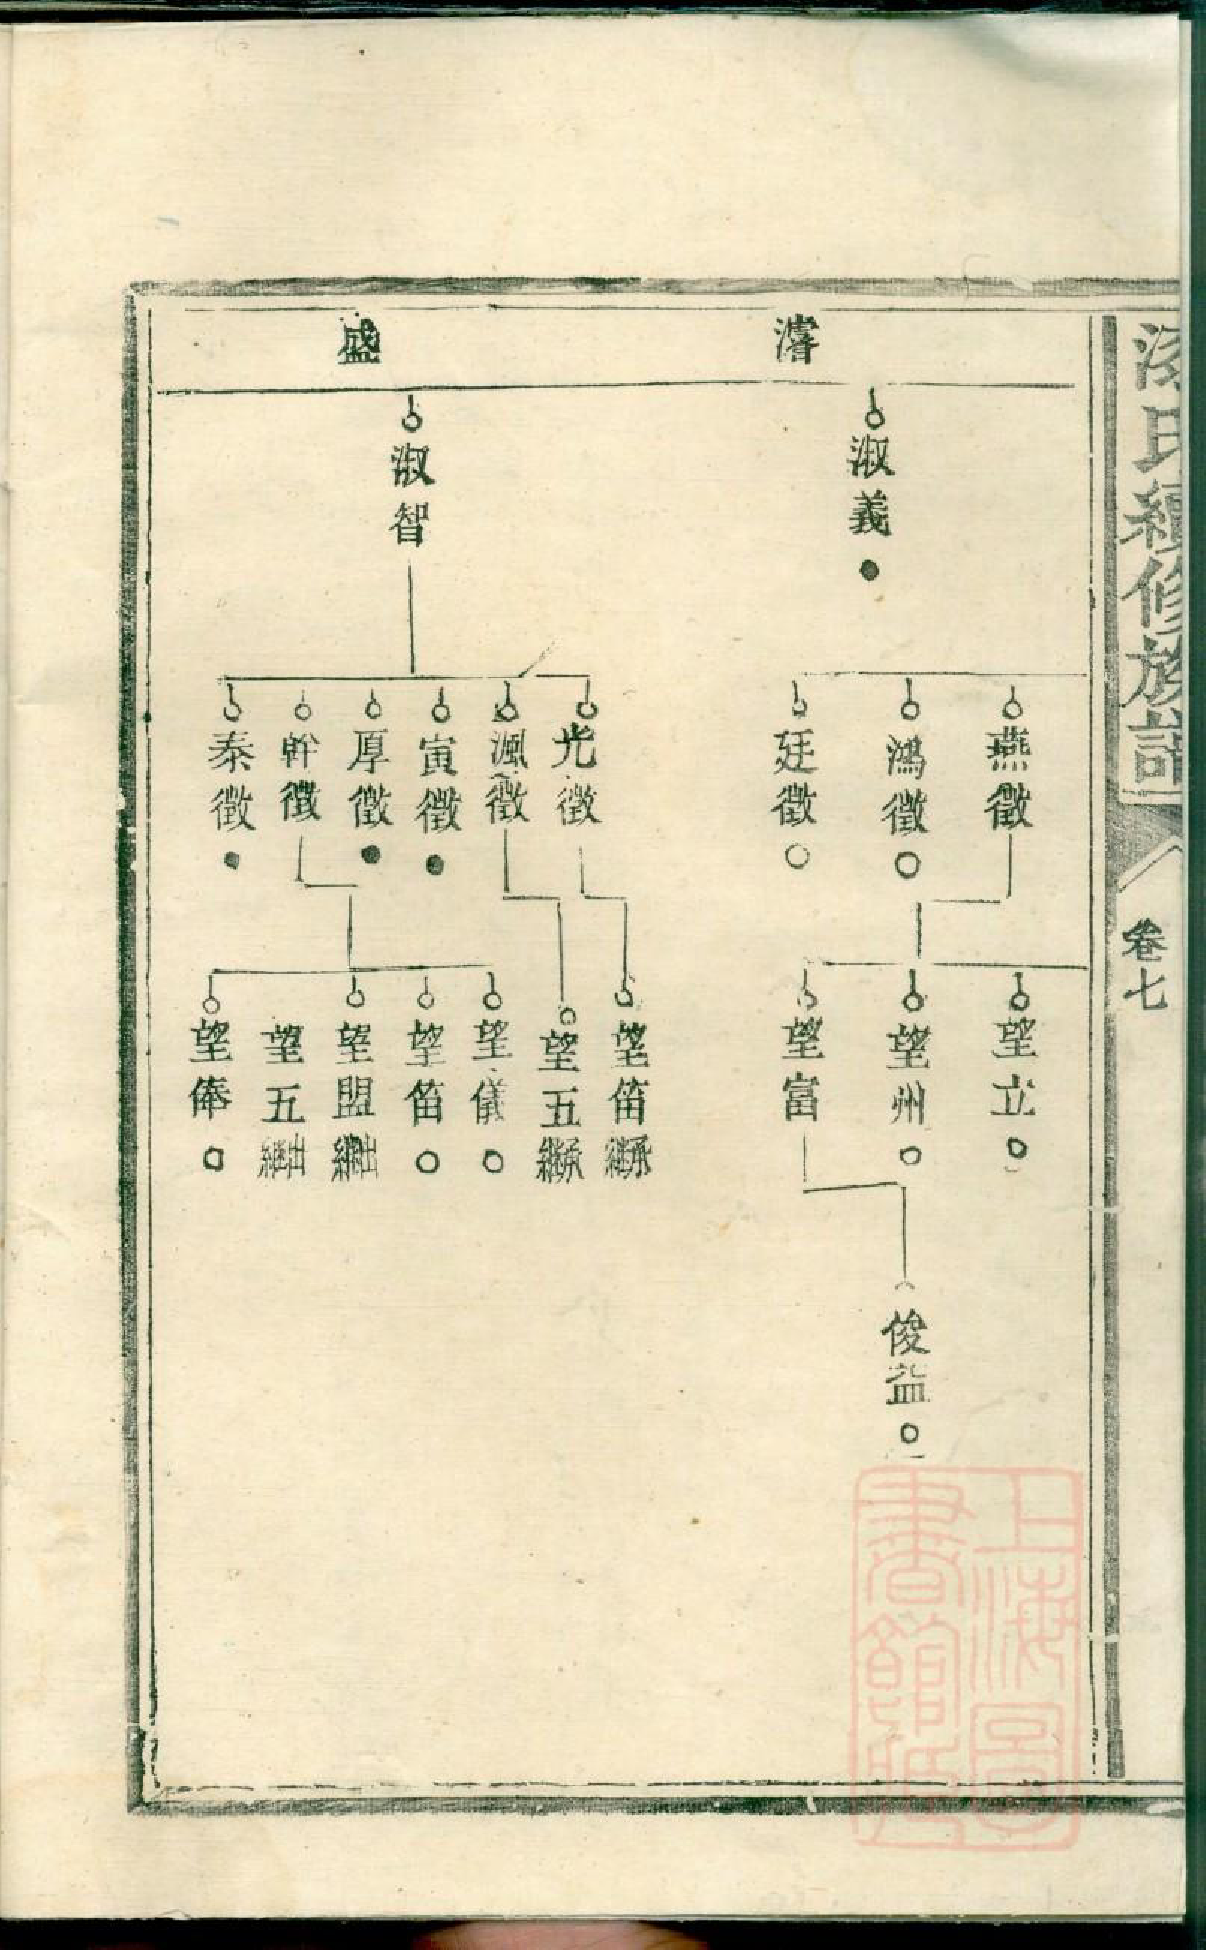 氏續修族譜
卷七
濬
盛
淑義
淑智
燕徵
鴻徵
廷徵
光徵
渢徵
寅徵
厚徵
幹徵
泰徵
望立
望州
望富
望笛承繼
望五承繼
望儀
望笛
望盟出繼
望五出繼
望俸
俊益
上海圖
書館藏